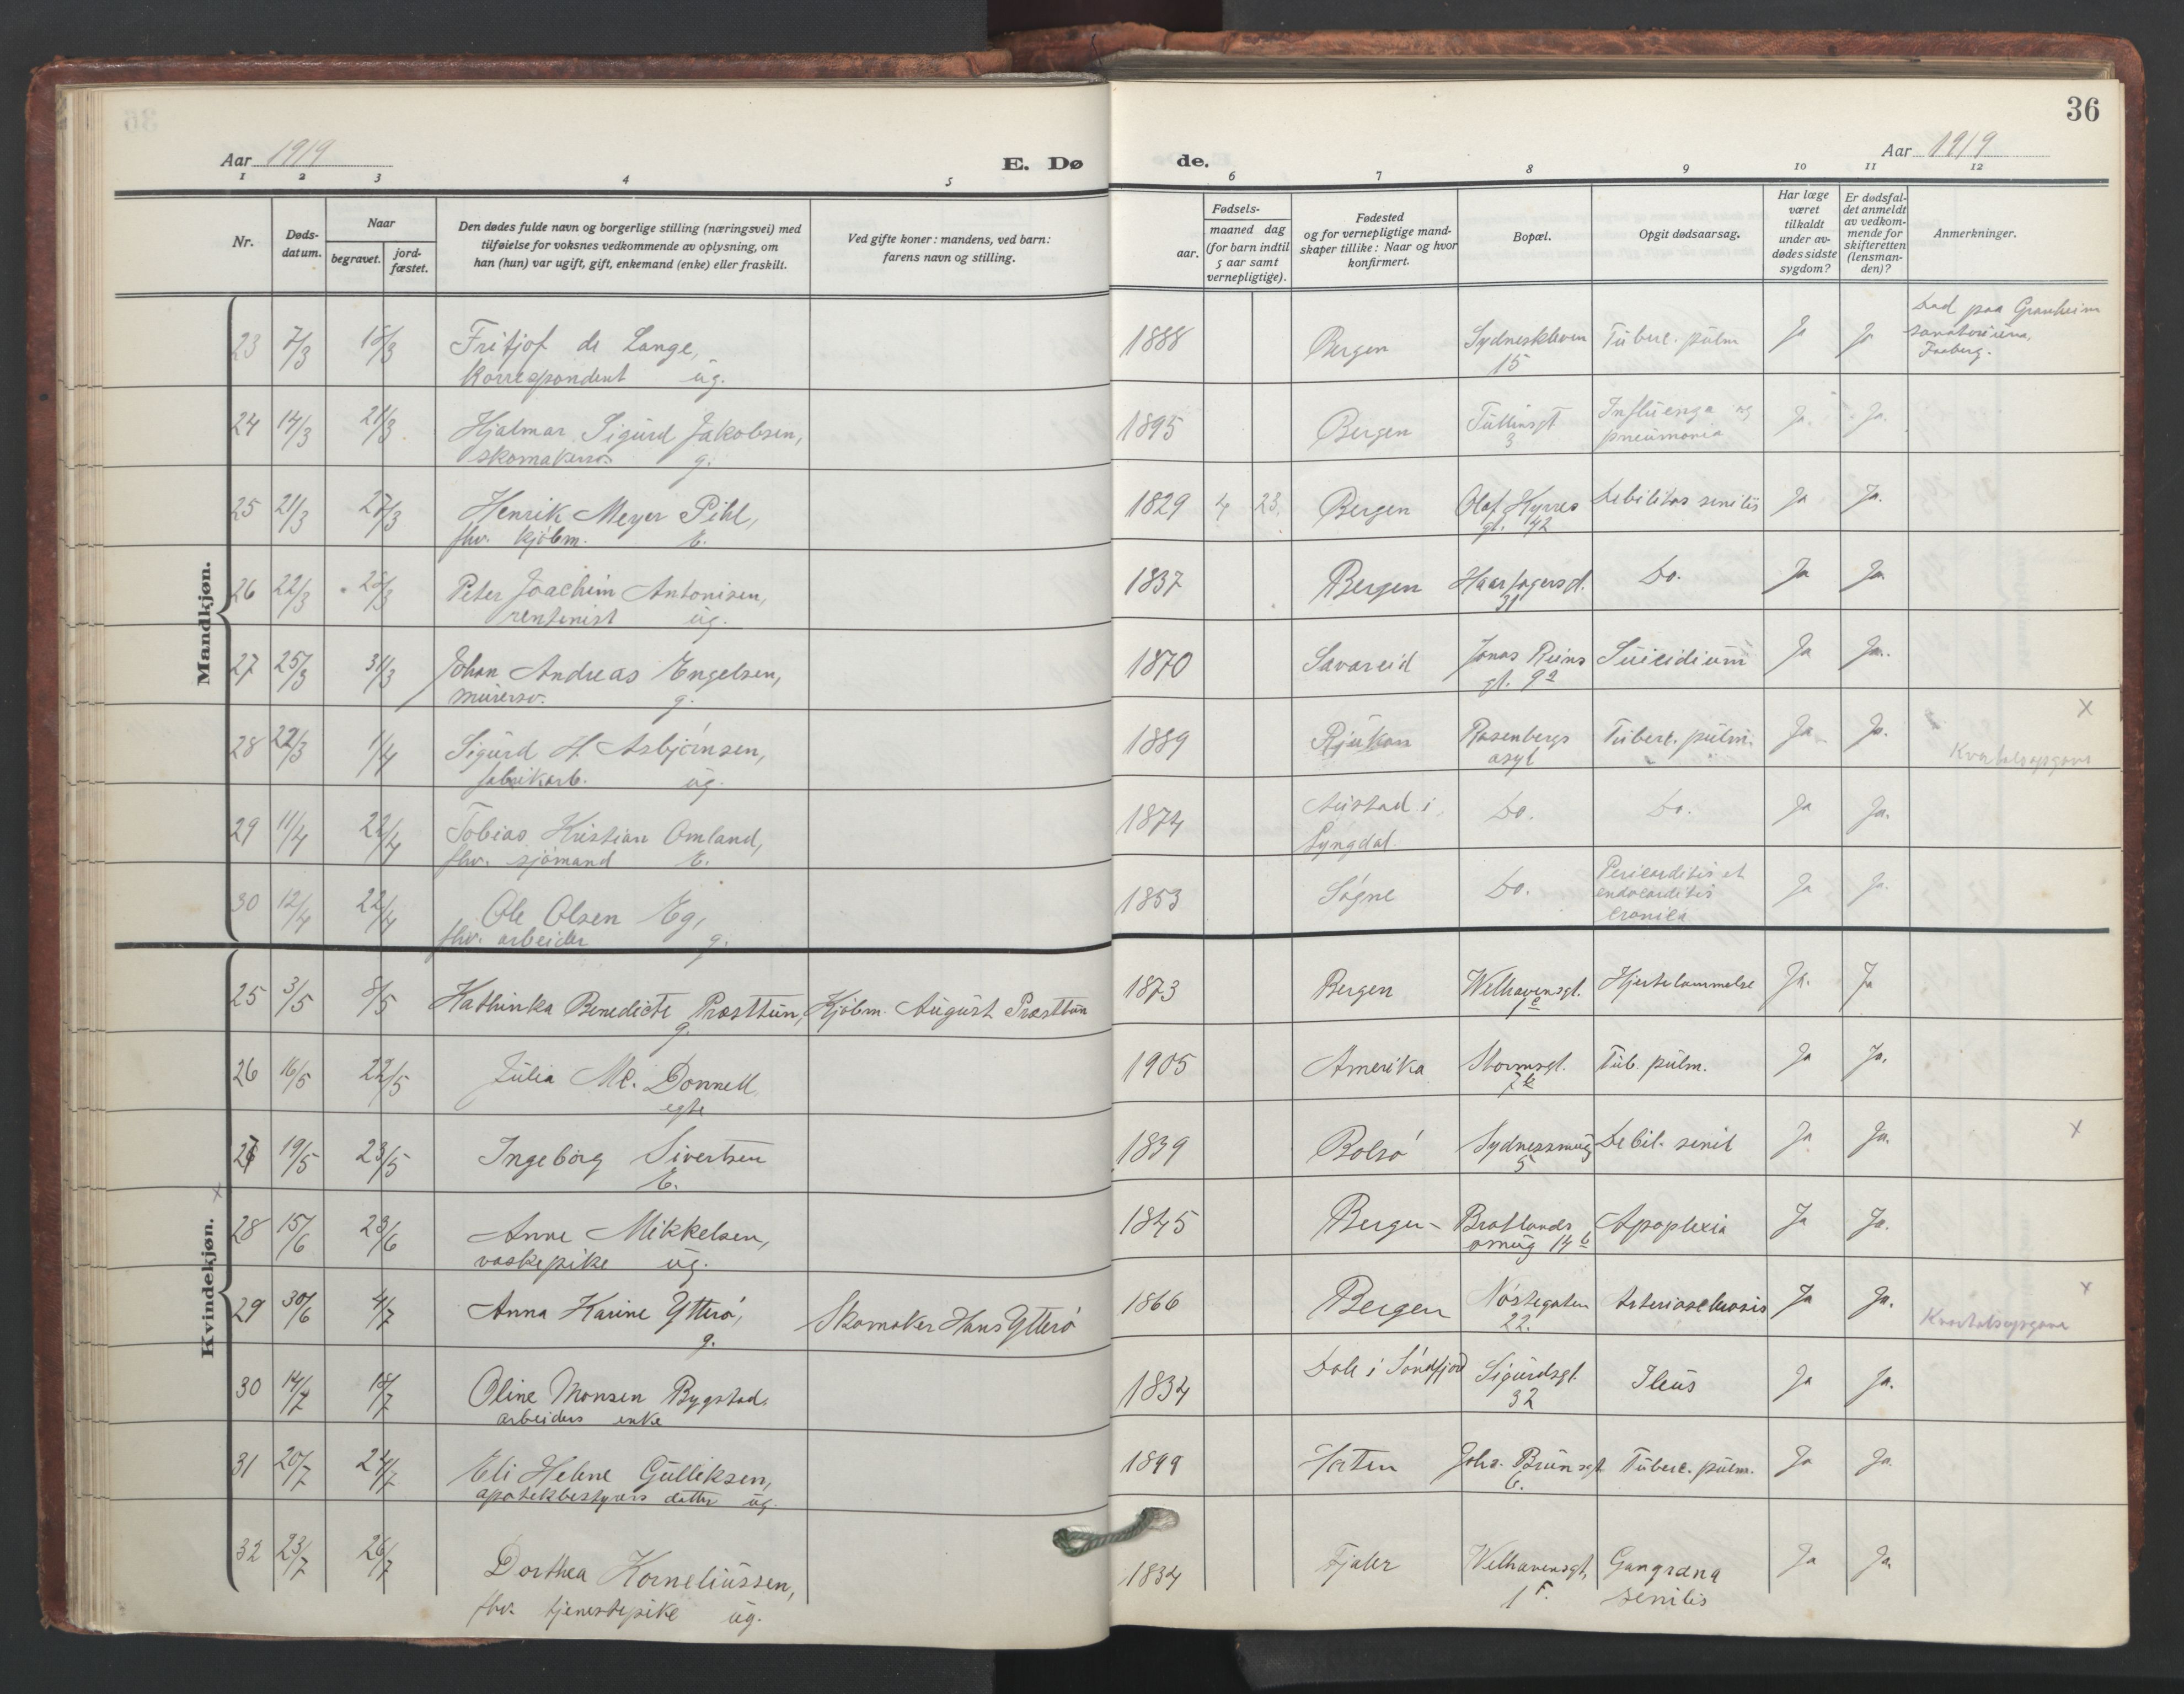 36
Aar 1919
E. Dø
de.
Aar 1919
1 2 3 4 5 6 7 8 9 10 11 12
Nr.
Døds-
datum.
Naar
begravet.
jord-
fæstet.
Den dødes fulde navn og borgerlige stilling (næringsvei) med
tilføielse for voksnes vedkommende av oplysning, om
han (hun) var ugift, gift, enkemand (enke) eller fraskilt.
Ved gifte koner: mandens, ved barn:
farens navn og stilling.
Fødsels-
aar.
maaned dag
(for barn indtil
5 aar samt
vernepligtige).
Fødested
og for vernepligtige mand-
skaper tillike: Naar og hvor
konfirmert.
Bopæl.
Opgit dødsaarsag.
Har læge
været
tilkaldt
under av-
dødes sidste
sygdom?
Er dødsfal-
det anmeldt
av vedkom-
mende for
skifteretten
(lensman-
den)?
Anmerkninger.
Mandkjøn.
23 7/3 18/3 Fritjof de Lange,
korrespondent ug.
1888 Bergen Sydneskleven
15
Tuberc. pulm Ja Ja
Død paa Granheim
sanatorium,
Faaberg.
24 14/3 21/3 Hjalmar Sigurd Jakobsen,
skomakersv. g.
1895 Bergen Tullinsgt
3
Influenza og
pneumonia
Ja. Ja.
25 21/3 27/3 Henrik Meyer Pihl,
fhv. kjøbm. E.
1829 4 23. Bergen Olaf Kyrres
gt. 42
Debilitas senilis Ja Ja.
26 22/3 28/3 Peter Joachim Antonisen,
rentenist ug.
1837 Bergen Haarfagersgt.
31
Do. Ja Ja.
27 25/3 31/3 Johan Andreas Engelsen,
murersv. g.
1870 Savareid Jonas Reins
gt. 9a
Suicidium Ja Ja.
28 22/3 1/4 Sigurd H. Asbjørnsen,
fabrikarb. ug.
1889 Rjukan Rosenbergs
asyl
Tuberc. pulm. Ja Ja. x
Kvartalsopgave
29 11/4 22/4 Tobias Kristian Omland,
fhv. sjømand E.
1874 Austad i
Lyngdal.
Do. Do. Ja Ja.
30 12/4 22/4 Ole Olsen Eg,
fhv. arbeider g.
1853 Søgne Do.
Pericarditis et
endocarditis
cronica
Ja Ja.
Kvindekjøn.
25 3/5 8/5 Kathinka Benedicte Præsttun, Kjøbm. August Præsttun
g.
1873 Bergen Welhavensgt.
1e
Hjertelammelse Ja. Ja
26 16/5 22/5 Julia Mc. Donnell,
egte
1905 Amerika Stormsgt.
7b
Tub. pulm. Ja Ja.
27 19/5 23/5 Ingeborg Sivertsen
E.
1839 Bolsø Sydnessmug
5
Debil. senil Ja Ja. x
x
28 15/6 23/6 Anne Mikkelsen,
vaskepike ug.
1845 Bergen Bratlands
smug 14b
Apoplexia Ja Ja.
29 30/6 4/7 Anna Karine Ytterø, Skomaker Hans Ytterø
g.
1866 Bergen Nøstegaten
22.
Arteriosclerosis Ja Ja. x
Kvartalsopgave
30 14/7 18/7 Oline Monsen Bygstad,
arbeiders enke
1834 Dale i Søndfjord Sigurdsgt
32
Ileus Ja Ja.
31 20/7 24/7 Eli Helene Gulliksen,
apotekbestyrers datter ug.
1899 Horten Johs. Brunsgt
6.
Tuberc. pulm. Ja Ja.
32 23/7 26/7 Dorthea Korneliussen,
fhv. tjenestepike ug.
1834 Fjaler Welhavensgt,
1F.
Gangræna
senilis
Ja Ja